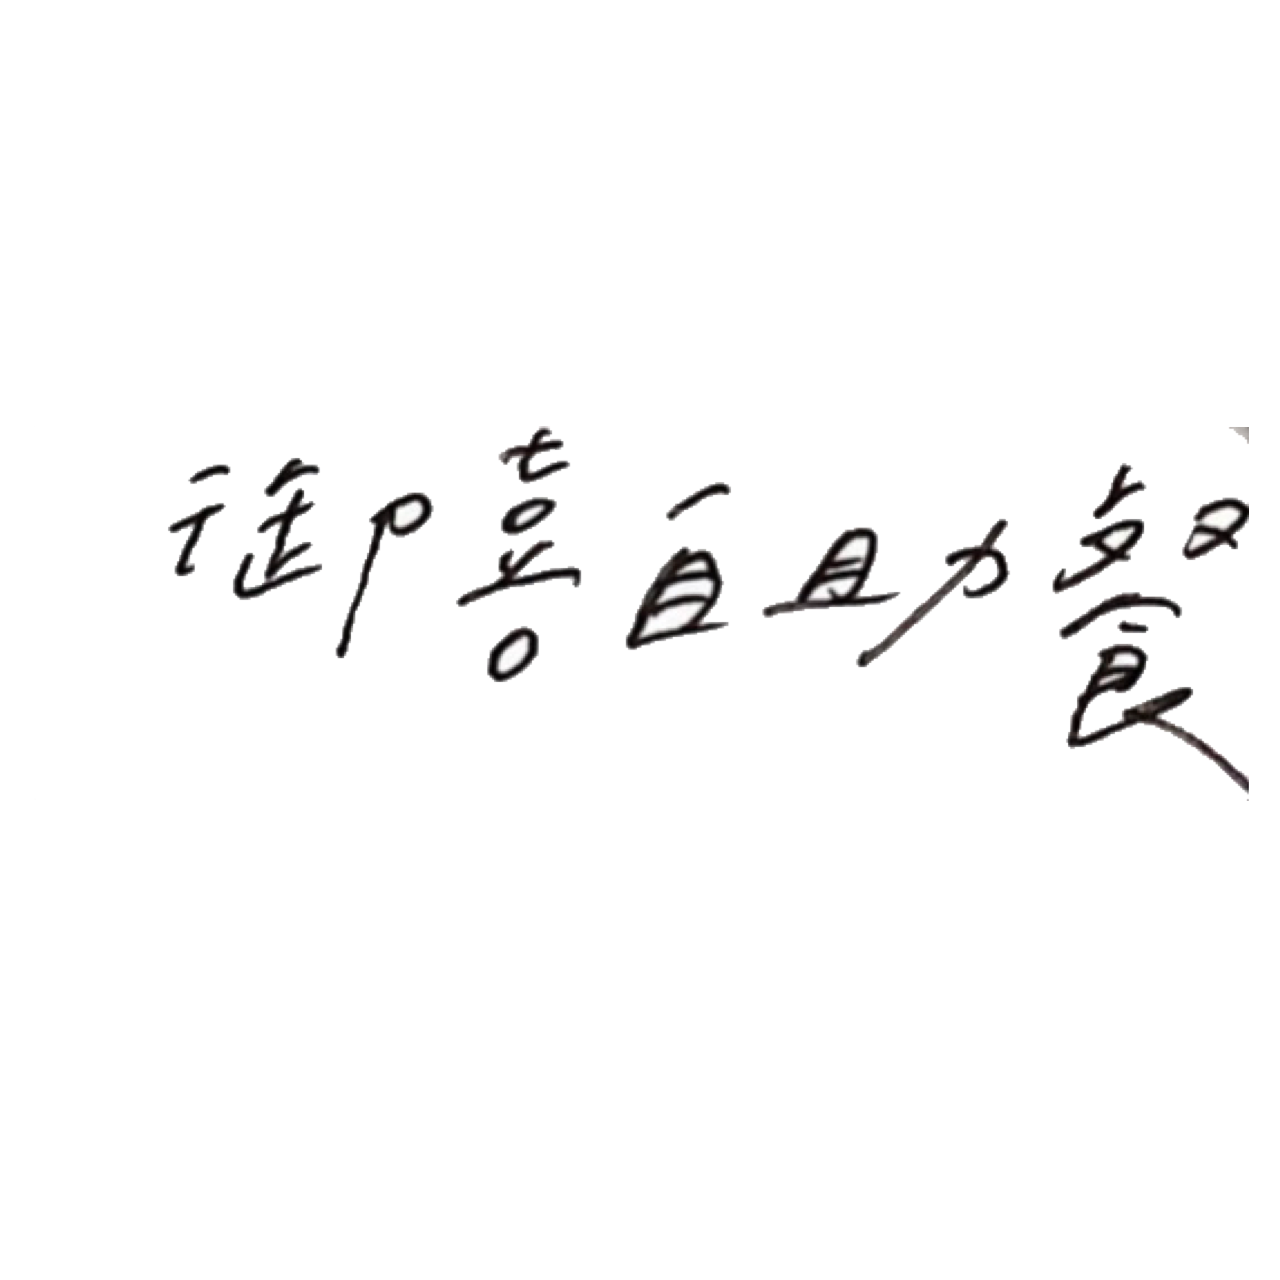 御喜自助餐